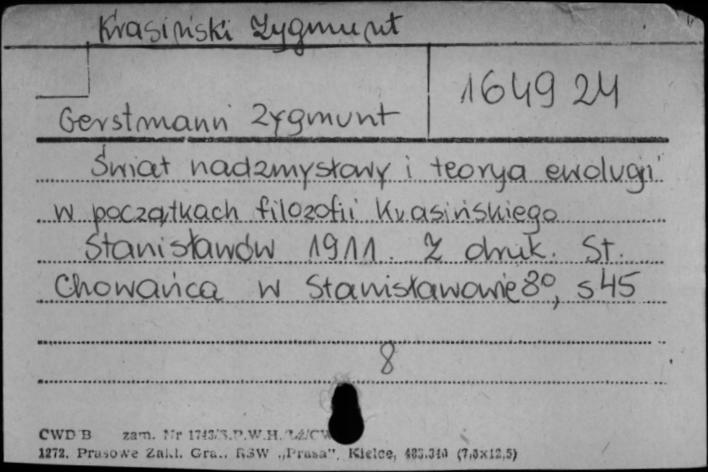 Krasiński Zygmunt
164924
Gerstmann Zygmunt
Świat nadzmysłowy i teorya ewolucji
w początkach filozofii Krasińskiego
Stanisławów 1911. Z druk. St.
Chowańca w Stanisławowie 8º, s 45
8
CWD B zam. Nr
1272. Prasowe Zakł. Gra.. RSW „Prasa", Kielce, (7,5x12,5)